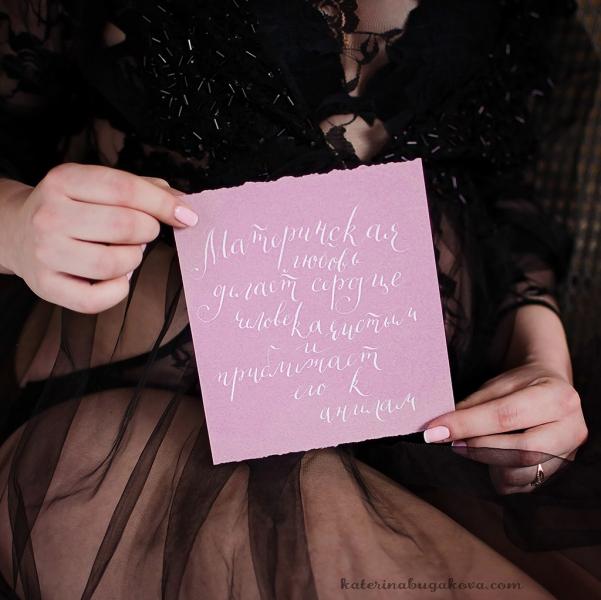 Материнская
любовь
делает сердце
человека чистым
и
приближает
его к
ангелам
katerinabugakova.com